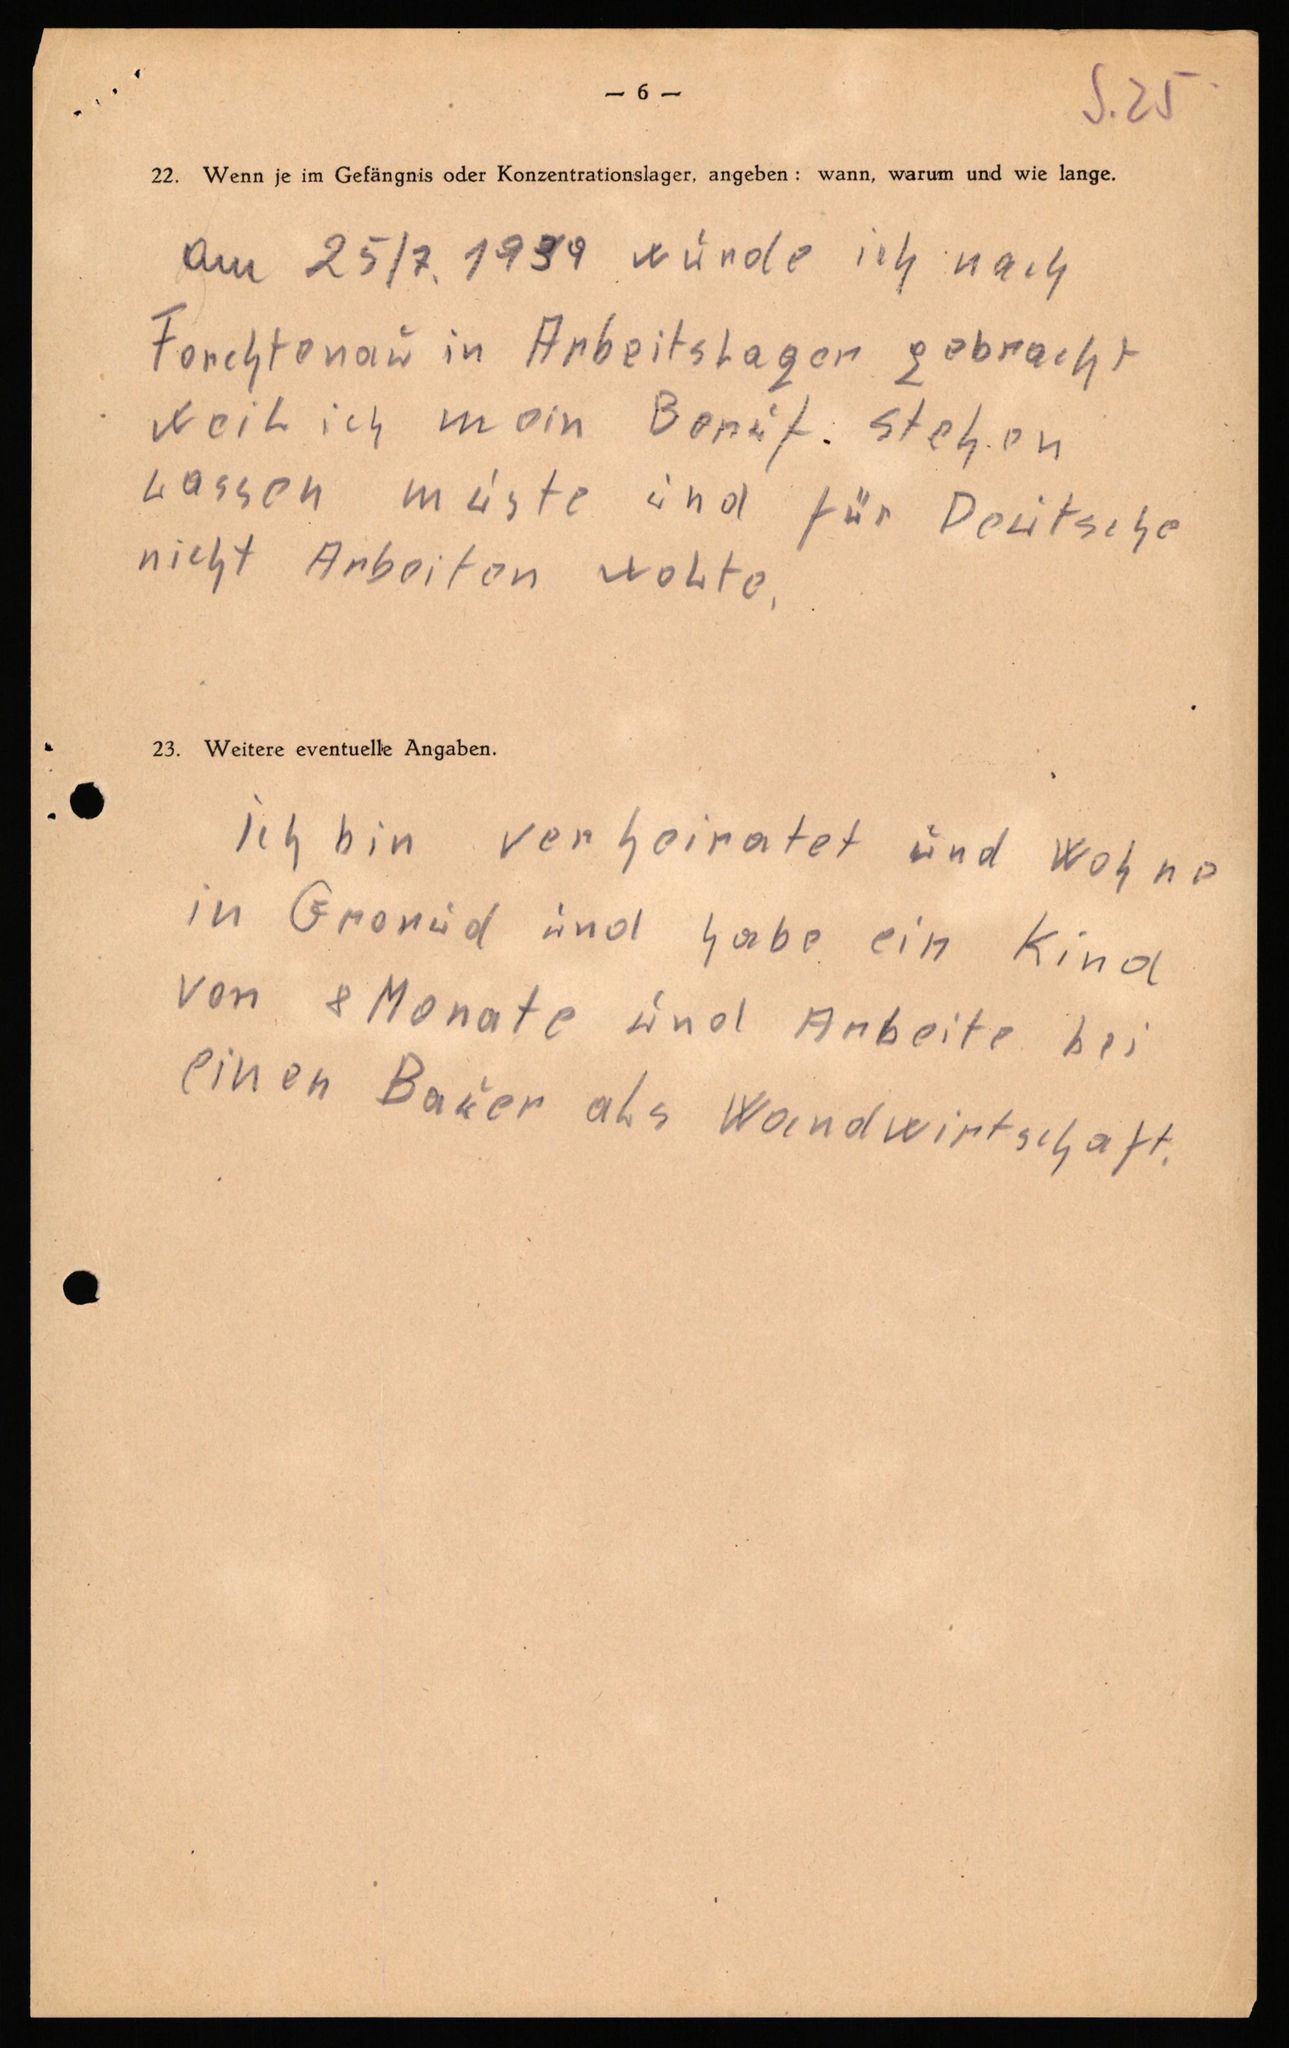 — 6 —
S. 25
22. Wenn je im Gefängnis oder Konzentrationslager, angeben : wann, warum und wie lange.
Am 25/7. 1939 wurde ich nach
Forchtenau in Arbeitslager gebracht
weil ich mein Beruf. stehen
lassen muste und für Deutsche
nicht Arbeiten wolte.
23. Weitere eventuelle Angaben.
ich bin verheiratet und Wohne
in Gronud und habe ein Kind
von 8 Monate und Arbeite bei
einen Bauer als Wandwirtschaft.